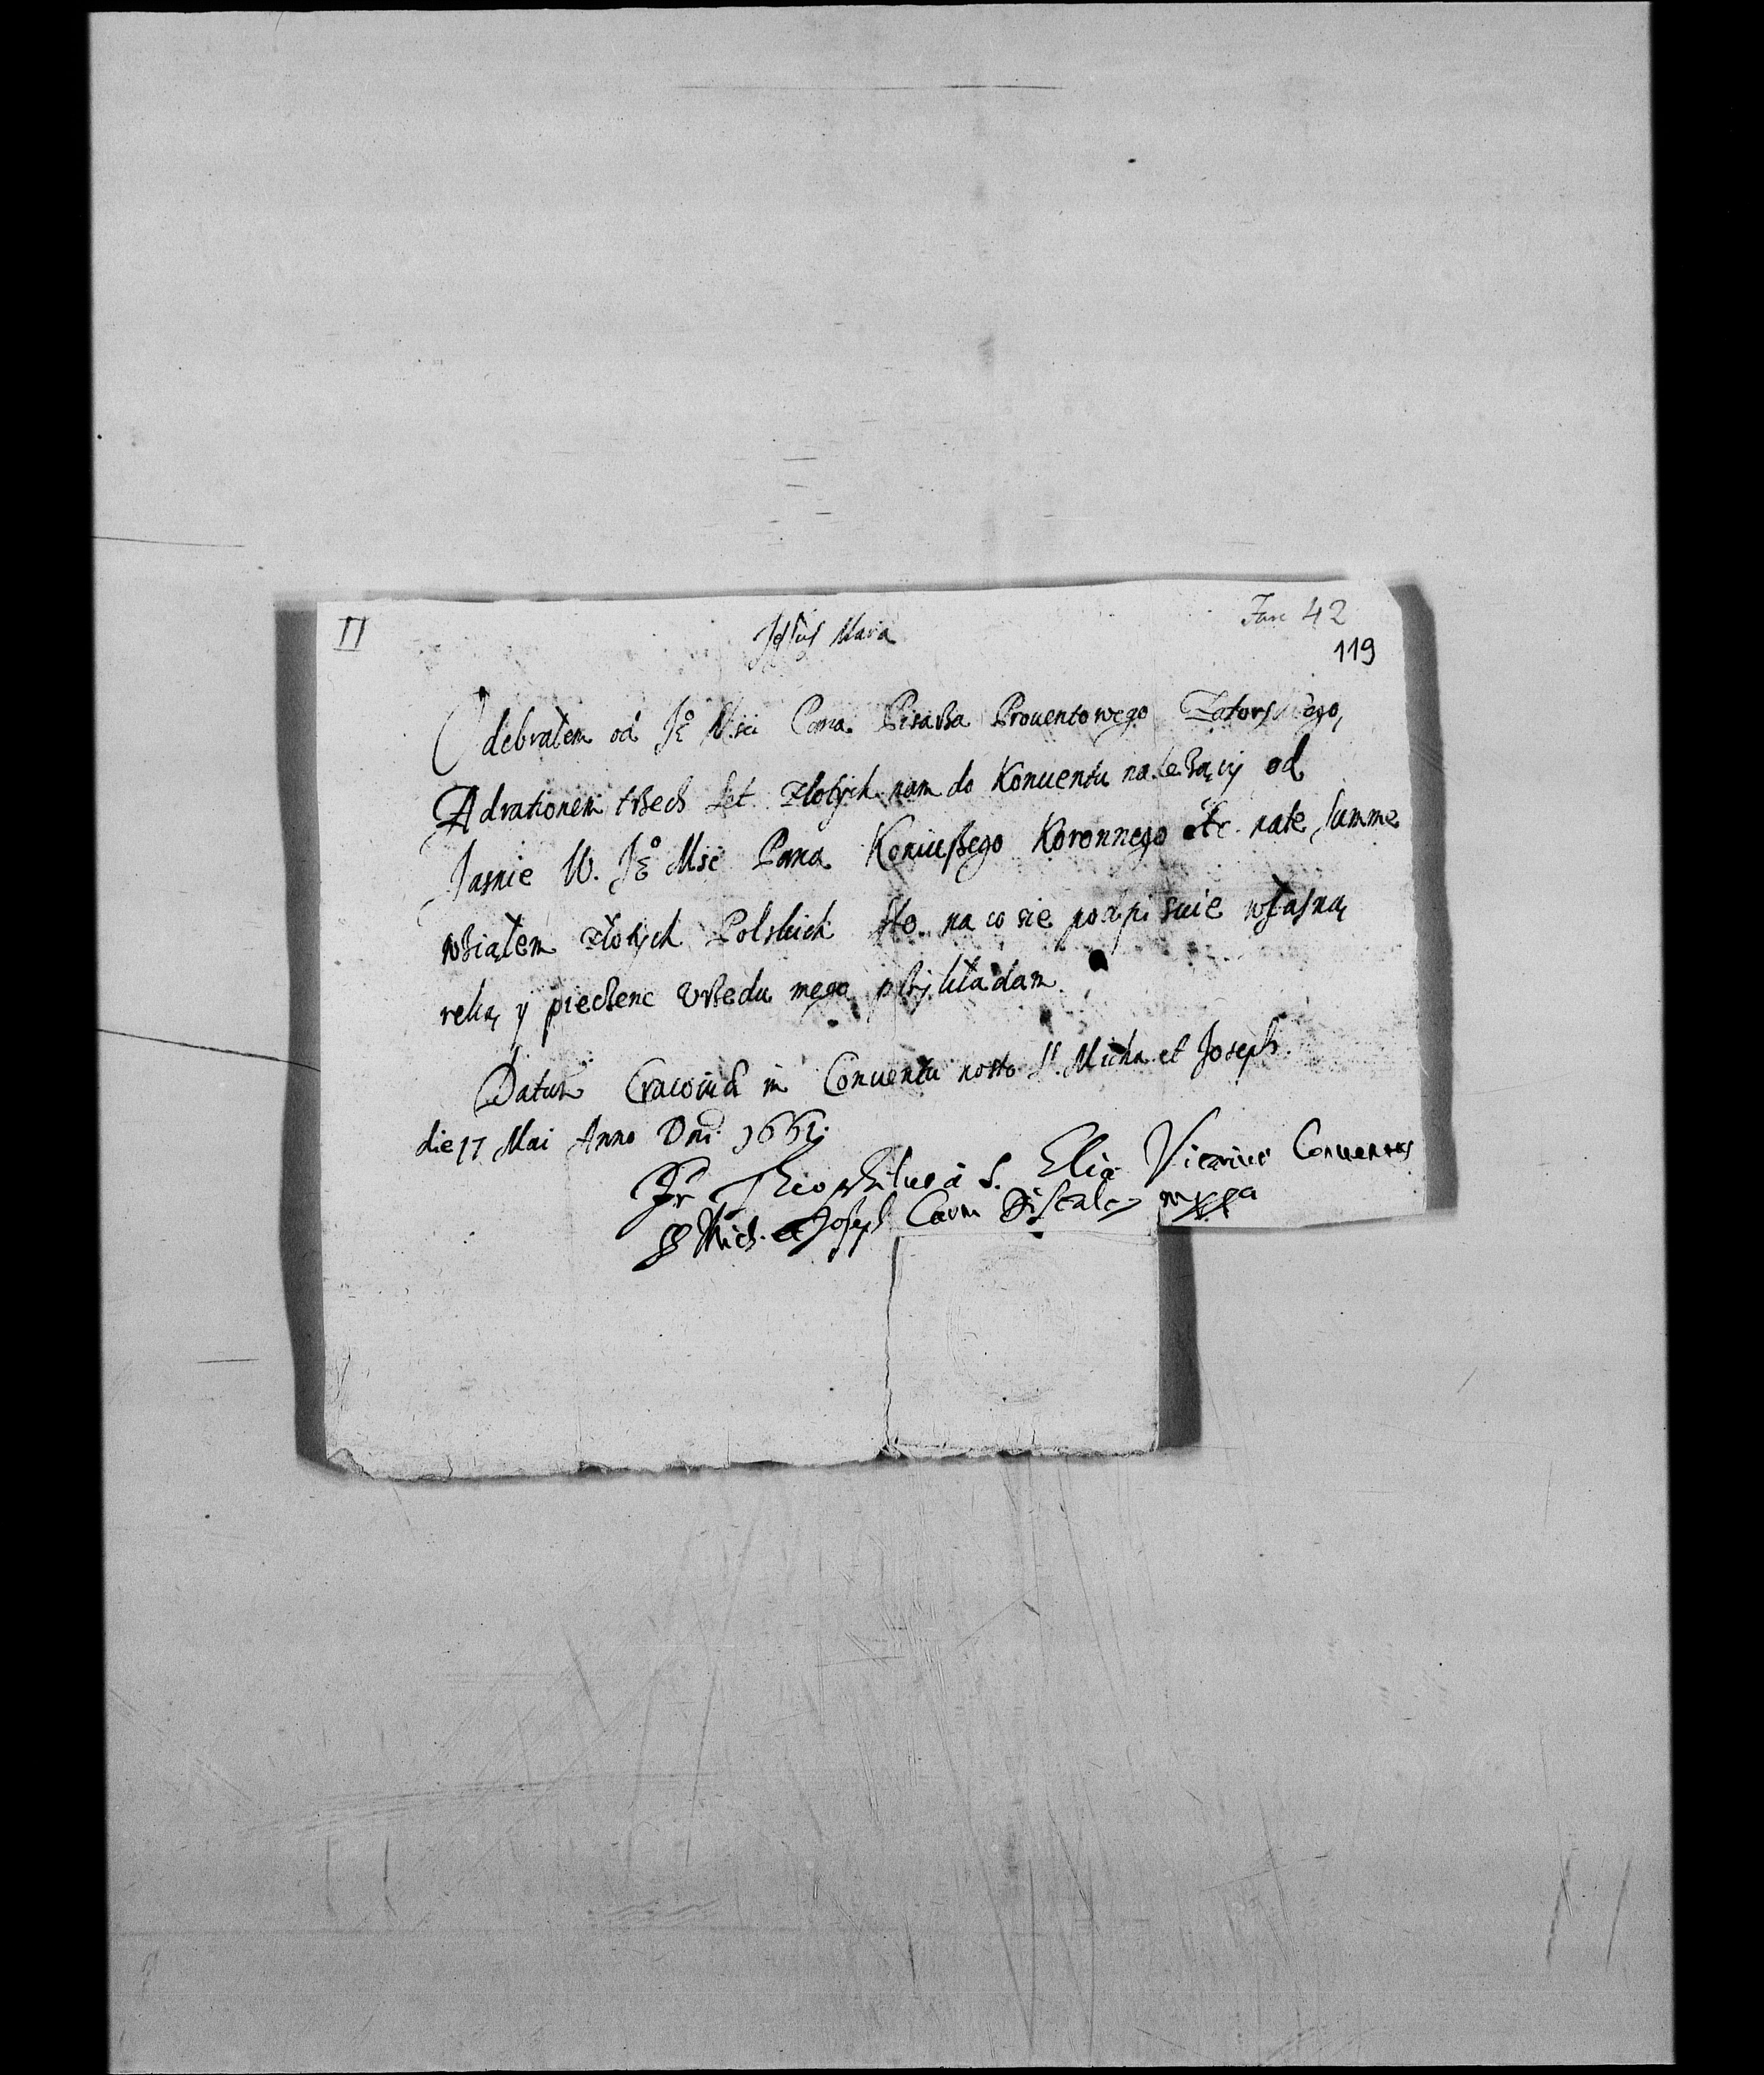 II
Jesus Maria
Fasc 42
119
Odebrałem od Je° Msci Pana Pisarza Prouentowego Zatorskiego,
Ad rationem trzech set złotych nam do Konuentu należący od
Jasnie W. Je° Msc Pana Koniuszego Koronnego etc. na te summe
wziąłem złotych Polskich sto. na co sie podpisuie własną
ręką y pieczenc Vrzedu mego przykładam.
Datum Cracouiæ in Conuentu nostro SS. Micha. et Joseph.
die 17 Mai Anno Dni
Fr Theophilus à S. Elia Vicarius Conuentus
SS Mich. et Joseph Carm Discalc mppa